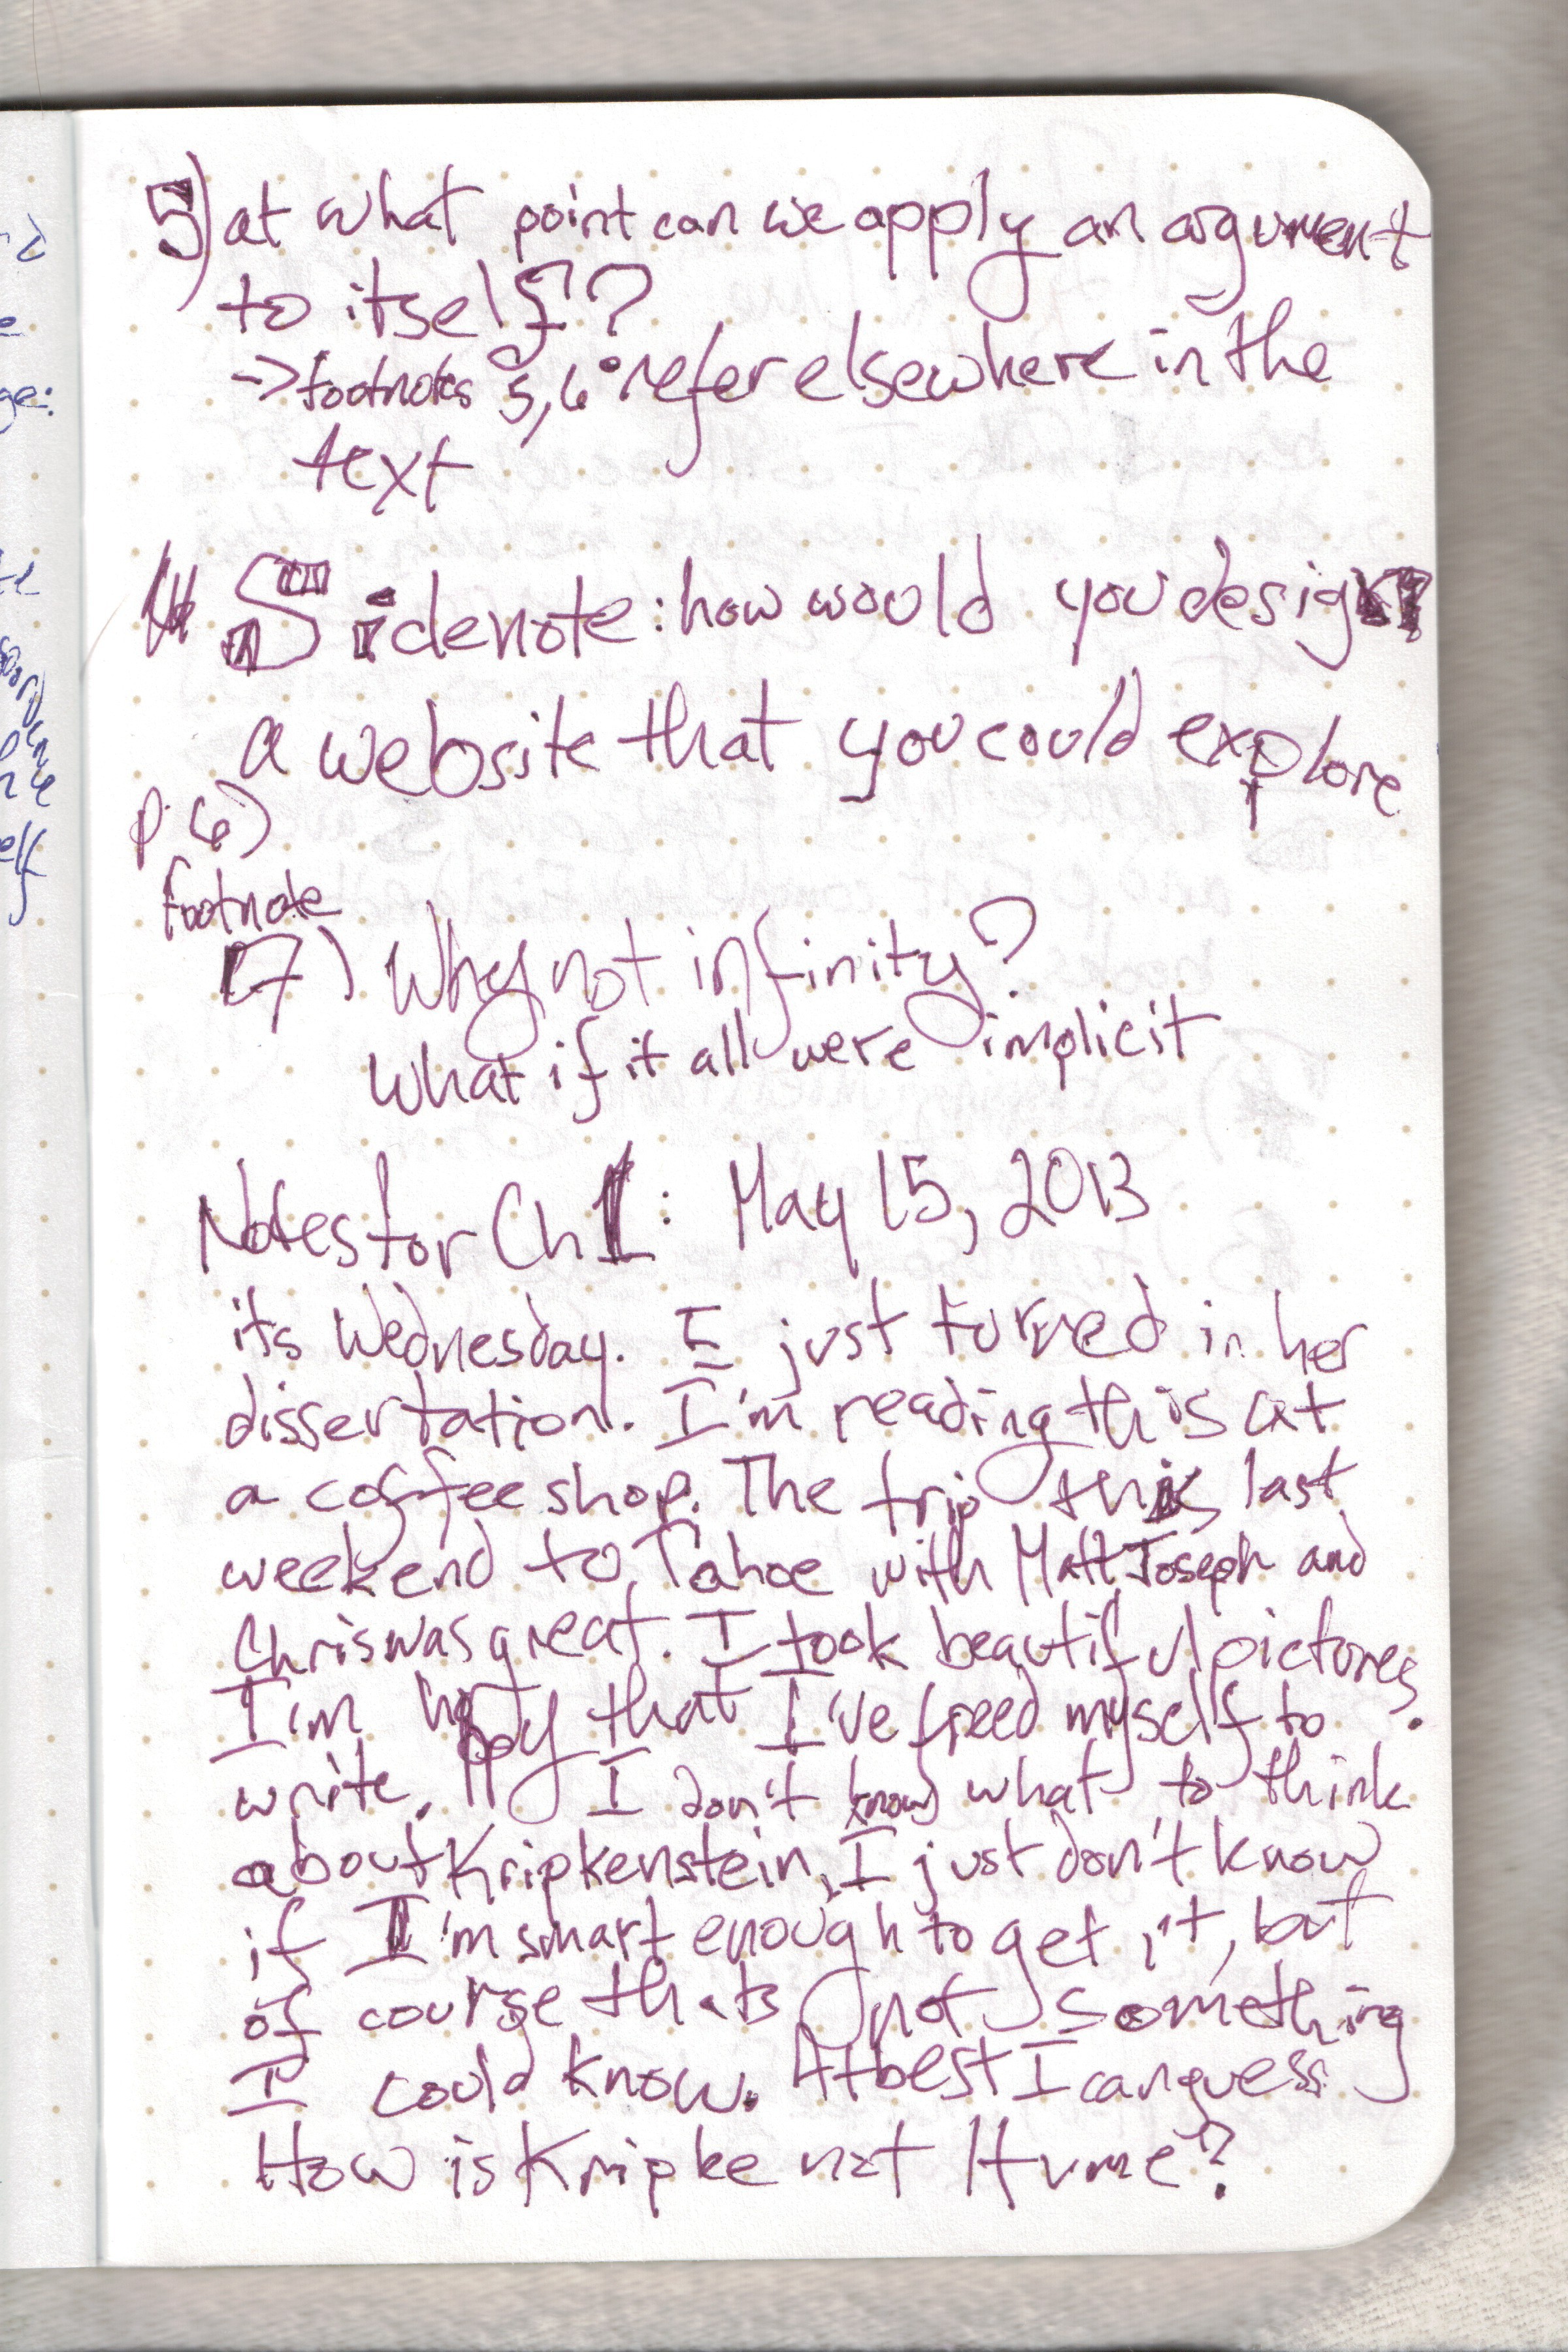 5) at what point can we apply an argument
to itself?
-> footnotes 5, 6 • refer elsewhere in the
text
Sidenote: how would you design
a website that you could explore
p. 6)
Footnote
7) Why not infinity?
What if it all were implicit
Notes for Ch 1: May 15, 2013
its Wednesday. I just turned in her
dissertation. I'm reading this at
a coffee shop. The trip this last
weekend to Tahoe with Matt Joseph and
Chris was great. I took beautiful pictures.
I'm happy that I've freed myself to
write. I don't know what to think
about Kripkenstein, I just don't know
if I'm smart enough to get it, but
of course thats not something
I could know. At best I can guess.
How is Kripke not Hume?